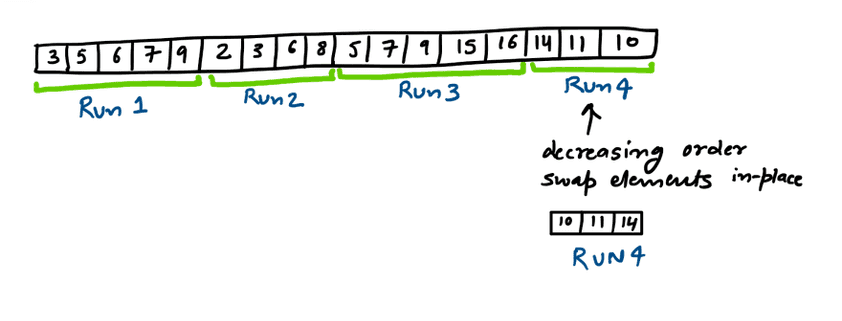 3 5 6 7 9 2 3 6 8 5 7 9 15 16 14 11 10
Run 1 Run 2 Run 3 Run 4
decreasing order
swap elements in-place
10 11 14
RUN 4